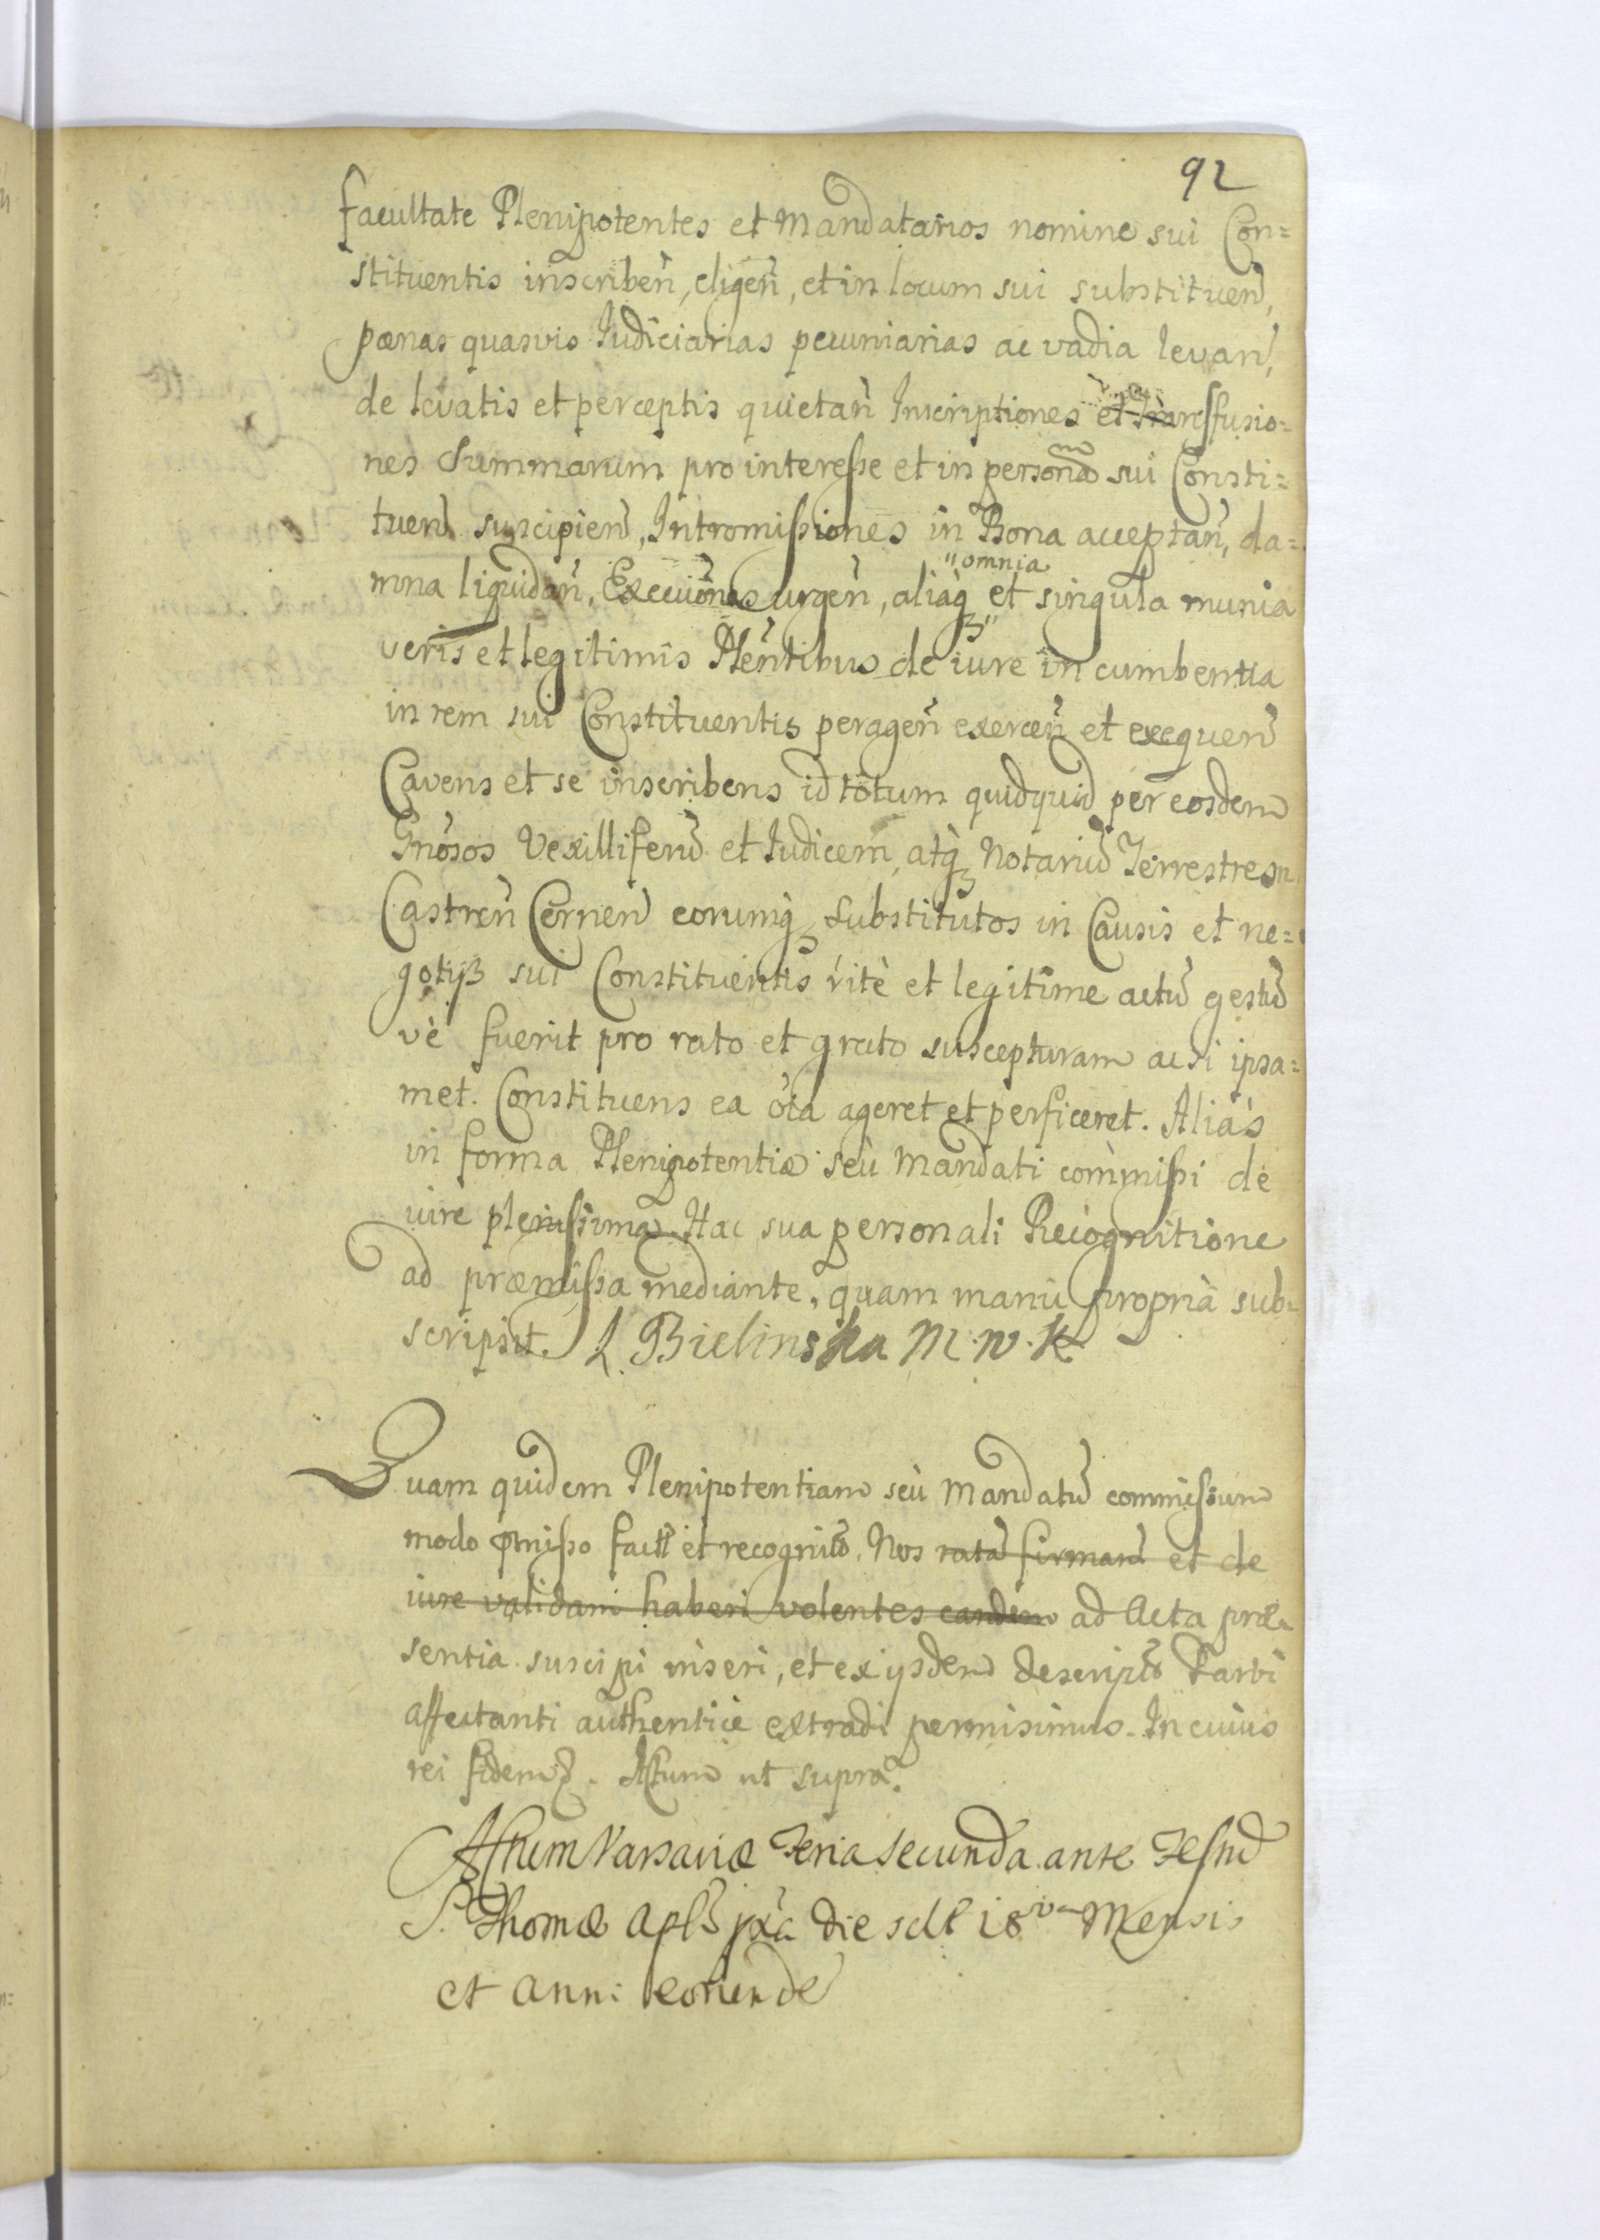 92
facultate Plenipotentes et Mandatarios nomine sui Con=
stituentis inscriben̄, eligen̄, et in locum sui substituen̄,
pœnas quasvis Iudiciarias pecuniarias ac vadia levan̄,
de levatis et perceptis quietan̄ Inscriptiones et Transfusio=
nes Summarum pro interesse et in personam sui Consti=
tuen̄ suscipien̄, Intromissiones in Bona acceptan̄, da=
mna liquidan̄, Execuōnes urgen̄, aliaq3 "omnia et singula munia
veris et legitimis Plēntibus de iure incumbentia
in rem sui Constituentis peragen̄ exercen̄ et exequen̄
Cavens et se inscribens id totum quidquid per eosdem
Gnōsos Vexilliferū et Iudicem, atq3 Notariū Terrestrem
Castren̄ Cernen̄ eorumq3 Substitutos in Causis et ne=
gotijs sui Constituentis ritè et legitime actū gestū
vè fuerit pro rato et grato suscepturam ac si ipsa=
met Constituens ea ōia ageret et perficeret. Aliàs
in forma Plenipotentiæ seù Mandati commissi de
iure plenissima. Hac sua personali Recognitione
ad præmissa mediante, quam manu proprià sub=
scripsit. L Bielinska M. W. K.
Quam quidem Plenipotentiam seù Mandatū commissum
modo pmisso fact et recognit. Nos ratā firmam et de
iure validam haberi volentes eandem ad Acta præ=
sentia suscipi inseri, et ex ijsdem descriptā Parti
affectanti authenticè extradi permisimus. In cuius
rei fidem. Actum ut supra.
Actum Varsaviæ Feria Secunda ante Festū
S. Thomæ Apli pxa die scil 18va Mensis
et Anni eorunde